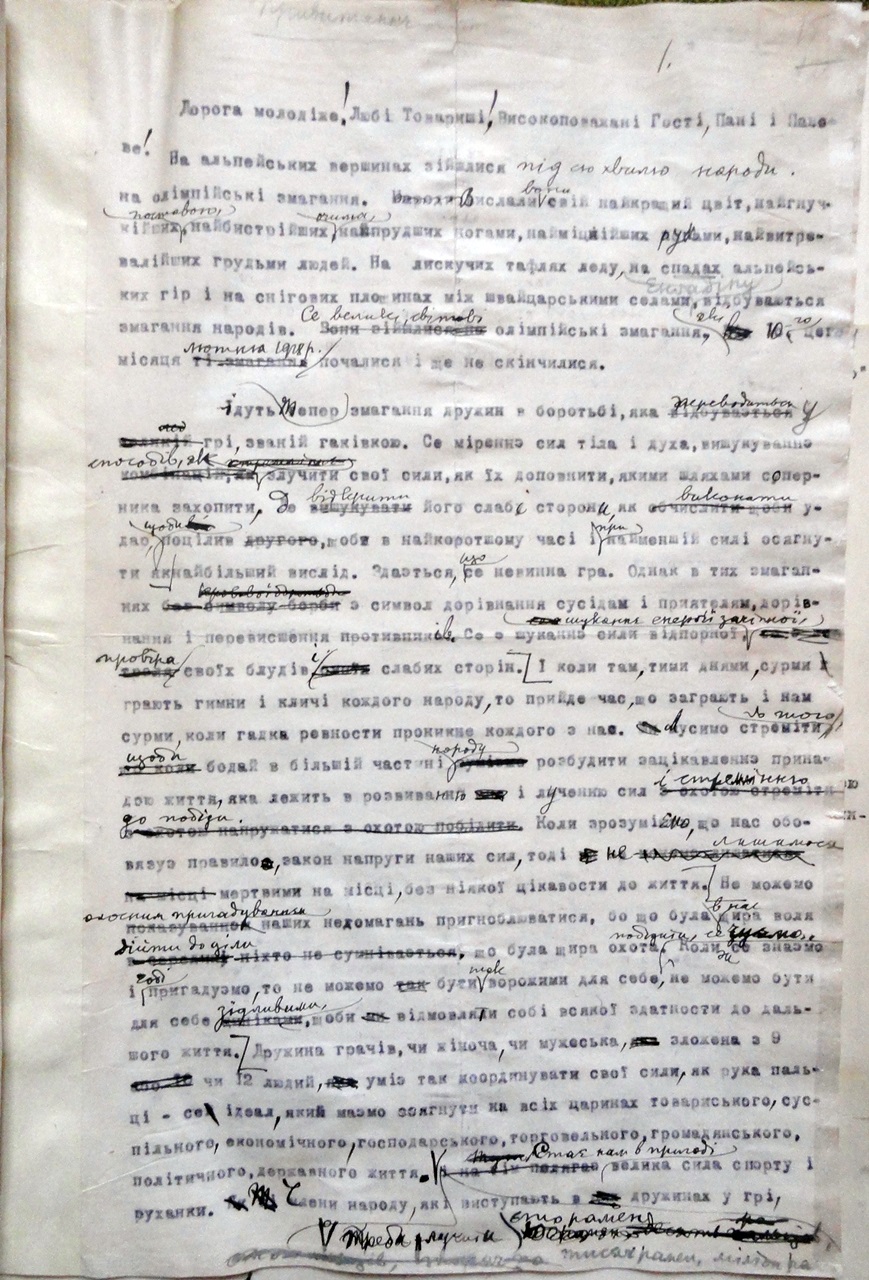 1.
Дорога молодіже! Любі Товариші! Високоповажані Гості, Пані і Пано-
ве!
На альпейських вершинах зійшлися під сю хвилю народи.
на олімпійські змагання. Вислали вони свій найкращий цвіт, найгнуч-
кійших поставою, найбистрійших очима, найпрудших ногами, найміцнійших руками, найвитре-
валійших грудьми людей. На лискучих тафлях леду, на спадах альпейсь-
ких гір і на снігових площинах між швайцарськими селами, відбуваються
змагання народів. Се великі, світові олімпійські змагання, які 10-го цего
місяця лютня 1928 р. почалися і ще не скінчилися.
Ідуть тепер змагання дружин в боротьбі, яка переводиться у
грі, званій гаківкою. Се міреннє сил тіла і духа, вишукуваннє
способів, як злучити свої сили, як їх доповнити, якими шляхами супер-
ника захопити, де відкрити його слабі сторони, як виконати у-
дар, щоби поцілив, щоби в найкоротшому часі і при найменшій силі осягну-
ти найбільший вислід. Здається, що се невинна гра. Однак в тих змаган-
нях є символ дорівнання сусідам і приятелям, дорів-
нання і перевисшення противників. Се є шуканнє сили відпорної, шукання енергії зачіпної,
провіра своїх блудів і слабих сторін. І коли там, тими днями, сурми
грають гимни і кличі кождого народу, то прийде час, що заграють і нам
сурми, коли гадка ревности проникне кождого з нас. Мусимо стреміти до того,
щоби бодай в більшій частині народу розбудити зацікавленнє прина-
дою життя, яка лежить в розвиванню і лученню сил і стремінню
до побіди. Коли зрозуміємо, що нас обо-
вязує правило, закон напруги наших сил, тоді не лишимося
мертвими на місці, без ніякої цікавости до життя. Не можемо
пригадуванням наших недомагань пригноблюватися, бо що була в нас щира воля
дійти до ціли, що була щира охота побідити, Коли се знаємо
і пригадуємо, то не можемо бути так ворожими для себе, не можемо бути
для себе зідливими, щоби відмовляти собі всякої здатности до даль-
шого життя. Дружина грачів, чи жіноча, чи мужеська, зложена з 9
чи 12 людий, уміє так координувати свої сили, як рука паль-
ці - се ідеал, який маємо осягнути на всіх царинах товариського, сус-
пільного, економічного, господарського, торговельного, громадянського,
політичного, державного життя. Стає нам в пригоді велика сила спорту і
руханки. Члени народу, які виступають в дружинах у грі,
Треба лучити